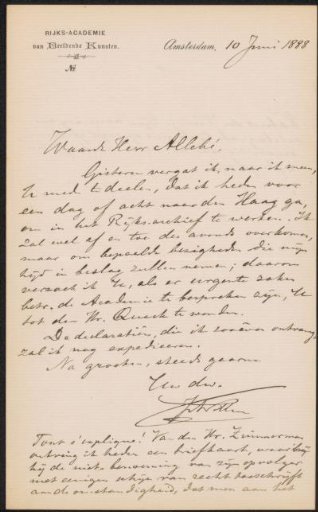 RIJKS-ACADEMIE
van Beeldende Kunsten.
No
Amsterdam, 10 Juni 1888
Waarde Heer Allebé,
Gisteren vergat ik, naar ik meen,
U mede te deelen, dat ik heden voor
een dag of acht naar den Haag ga,
om in het Rijksarchief te werken. Ik
zal wel af en toe des avonds overkomen,
maar om bepaalde bezigheden die mijn
tijd in beslag zullen nemen; daarom
verzoek ik U, als er urgente zaken
betr. de Academie te bespreken zijn, U
tot den Hr. te wenden.
De declaratiën, die ik zooeven ontvang,
zal ik nog expedieeren.
Na groeten, steeds gaarne
Uw dw.
Tout s'explique! Van den Hr.
ontving ik heden een briefkaart, waarbij
hij de niet benoeming van zijn opvolger
met eenigen schijn van recht toeschrijft
aan de omstandigheid, dat men aan het